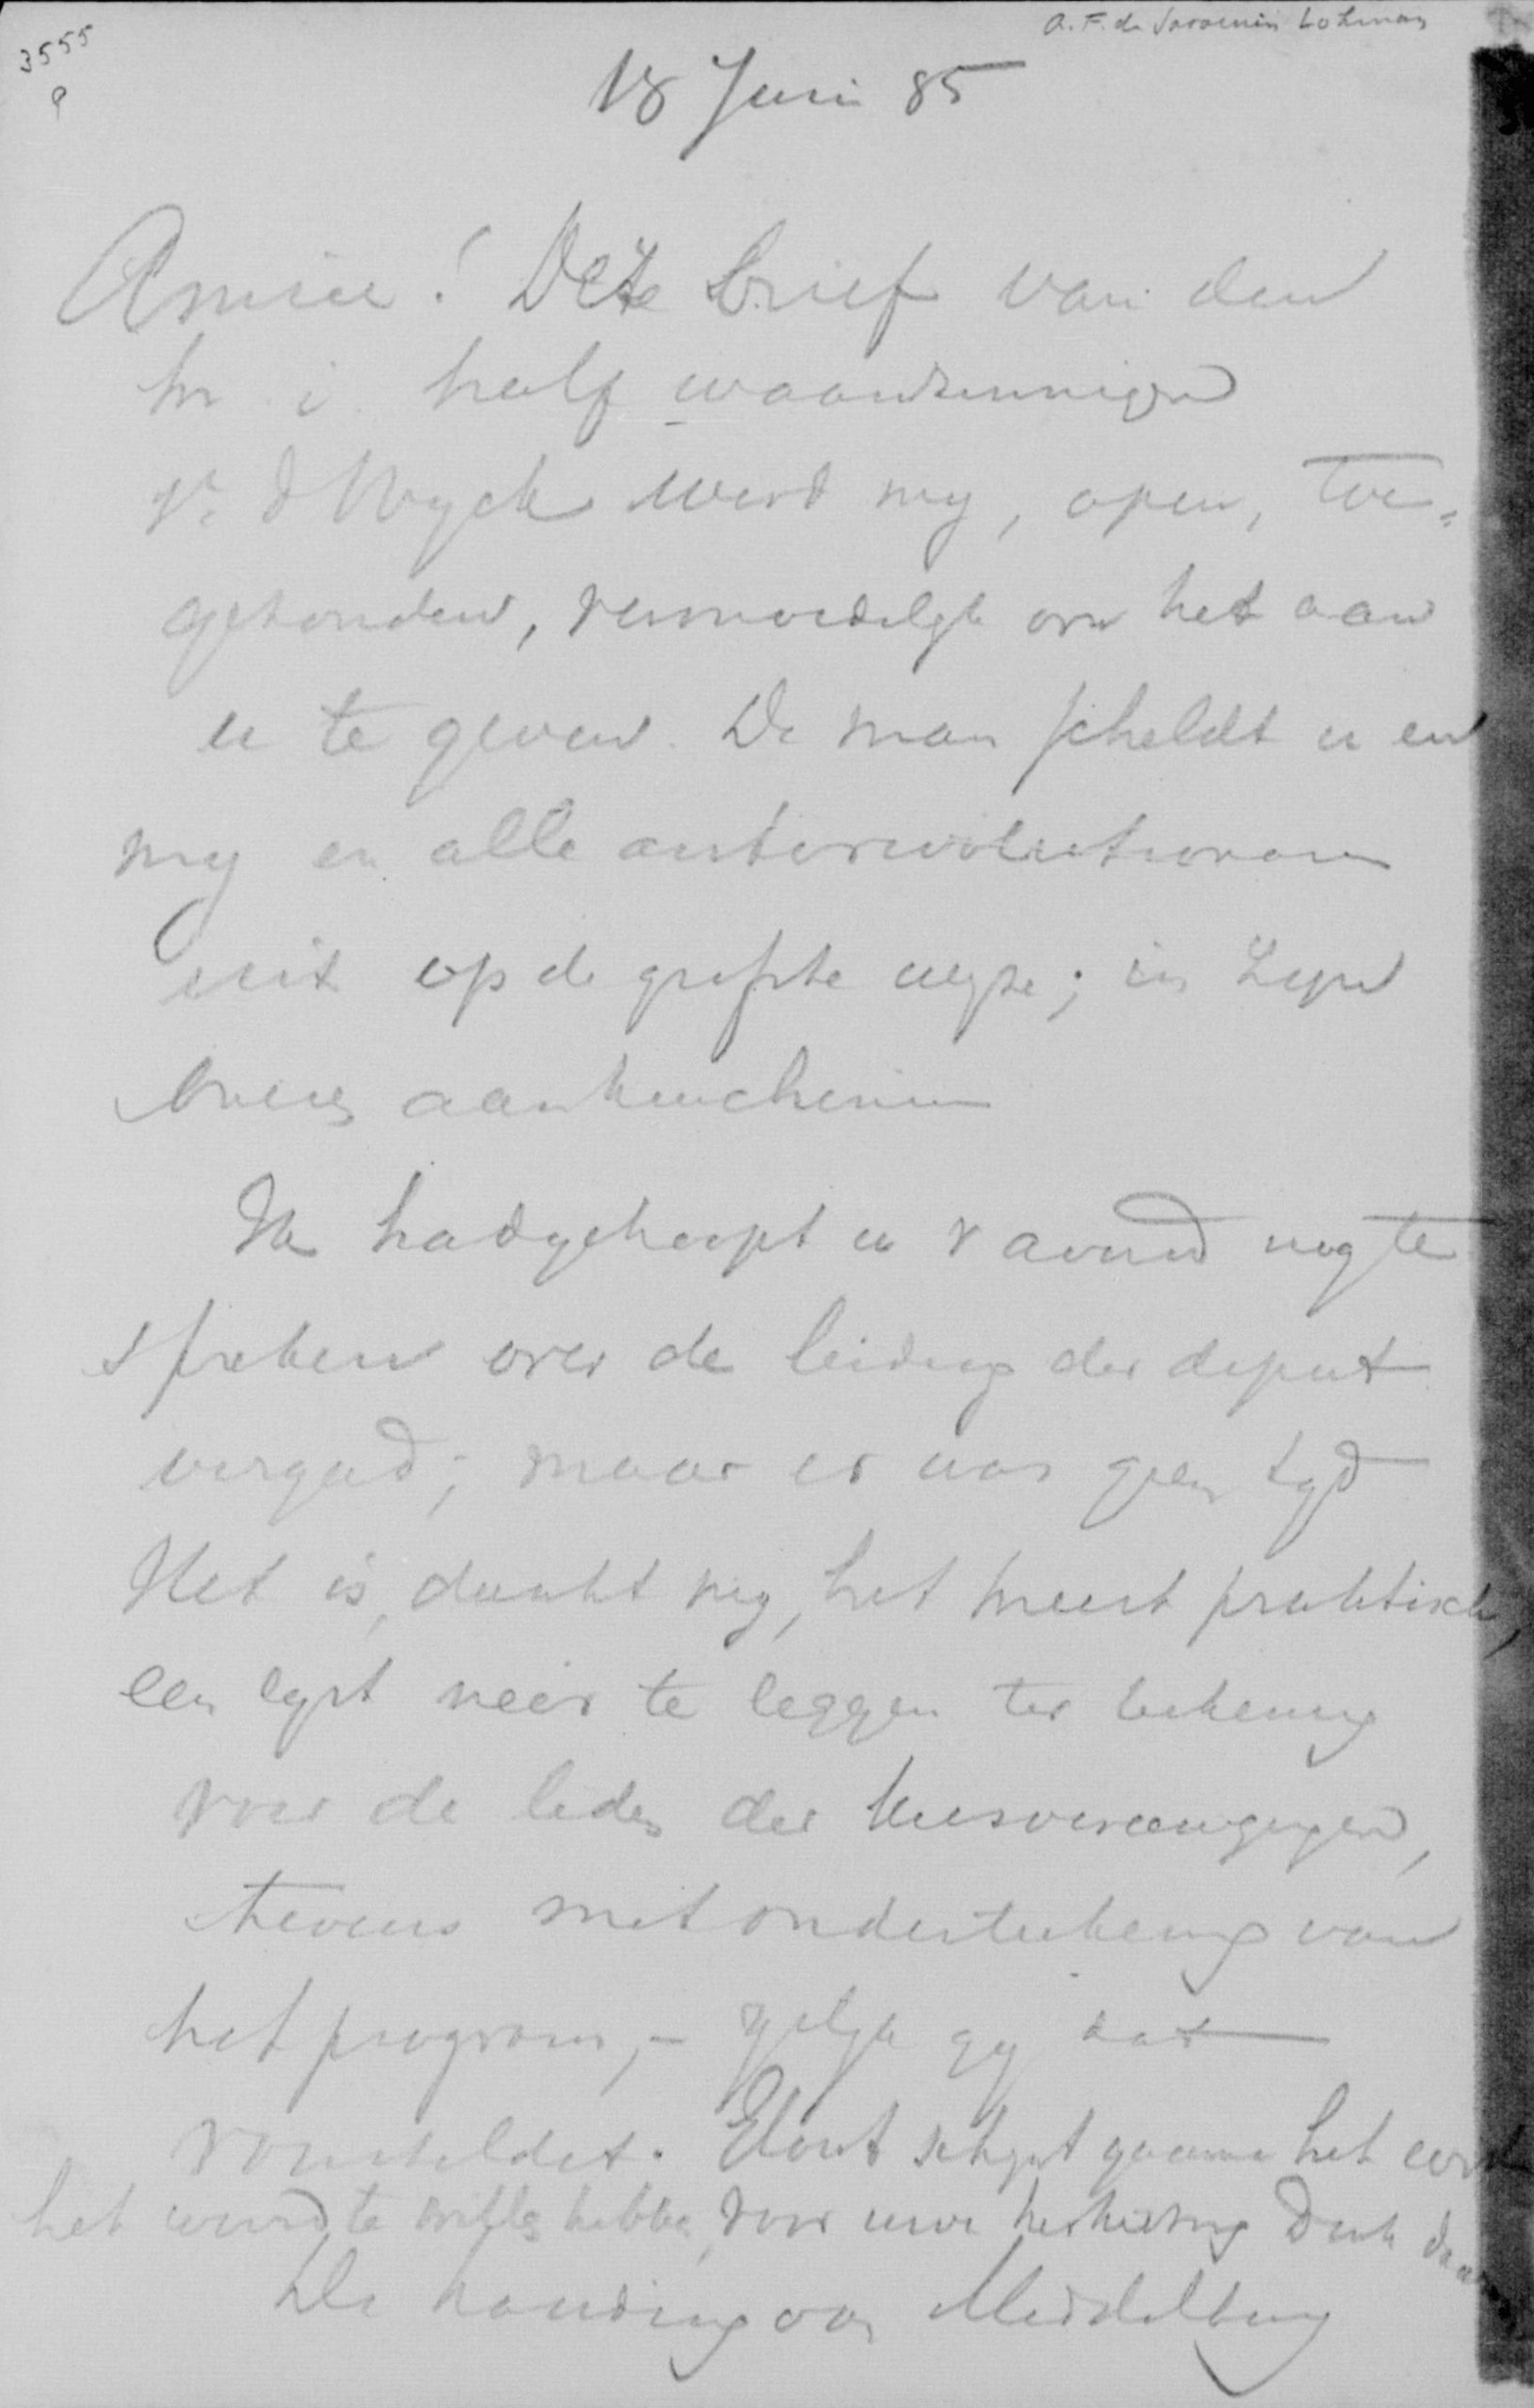 A. F. de Savornin Lohman
3555
18 Juni 85
Amice! Deze brief van den
m i half waanzinnigen
v. d Wyck werd my, open, toe-
gezonden, vermoedelyk om het aan
u te geven. De man scheldt u en
my en alle antirevolutionaren
uit op de grofste wyze; in zyn
brieven aan
Ik had gehoopt u v avond nog te
spreken over de leiding der deput
vergad; maar er was geen tyd
Het is, dunkt my, het meest praktisch,
een lyst neer te leggen ter tekening
voor de leden der kiesvereenigingen,
tevens met ondertekening van
het program, - gelyk gy dat
voorstelt. Elout schynt gaarne het eerst
het woord te willen hebben, voor uwe Denk daar
De houding van Middelburg